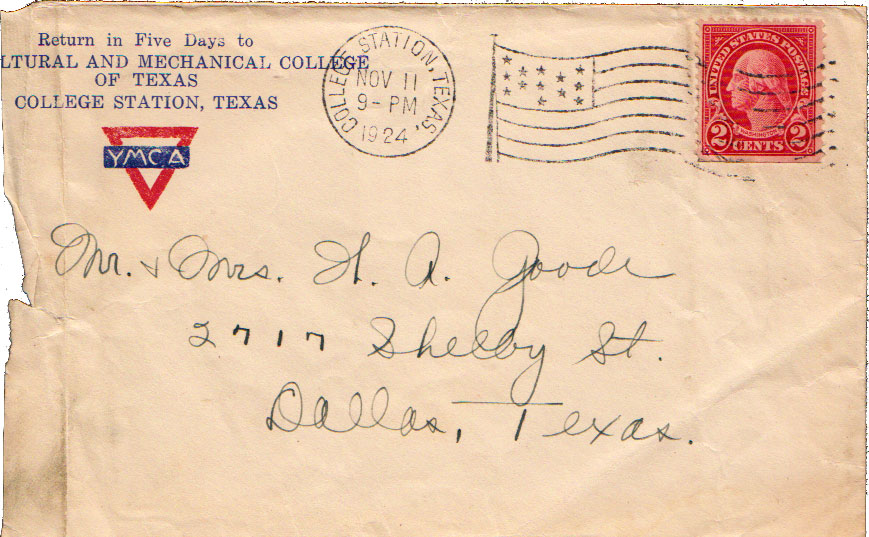 Return in Five Days to
LTURAL AND MECHANICAL COLLEGE
OF TEXAS
COLLEGE STATION, TEXAS
YMCA
COLLEGE STATION, TEXAS,
NOV 11
9-PM
1924
UNITED STATES POSTAGE
WASHINGTON
2 CENTS 2
Mr. & Mrs. H. A. Goode
2717 Shelby St.
Dallas, Texas.